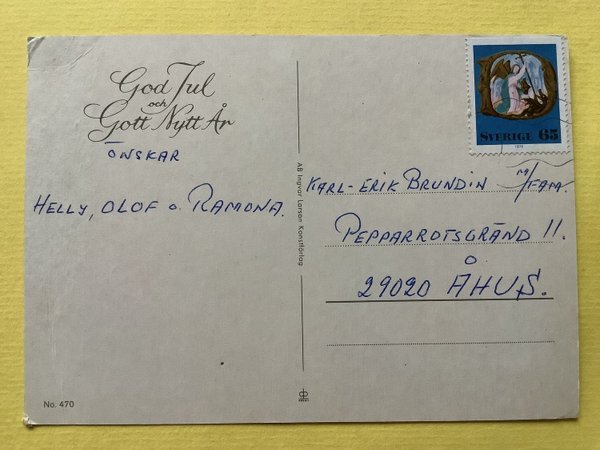 God Jul
och
Gott Nytt År
ÖNSKAR
HELLY, OLOF o. RAMONA.
No. 470
AB Ingvar Larson Konstförlag
SVERIGE 65
1976
KARL-ERIK BRUNDIN M/FAM.
PEPPARROTSGRÄND 11.
29020 ÅHUS.